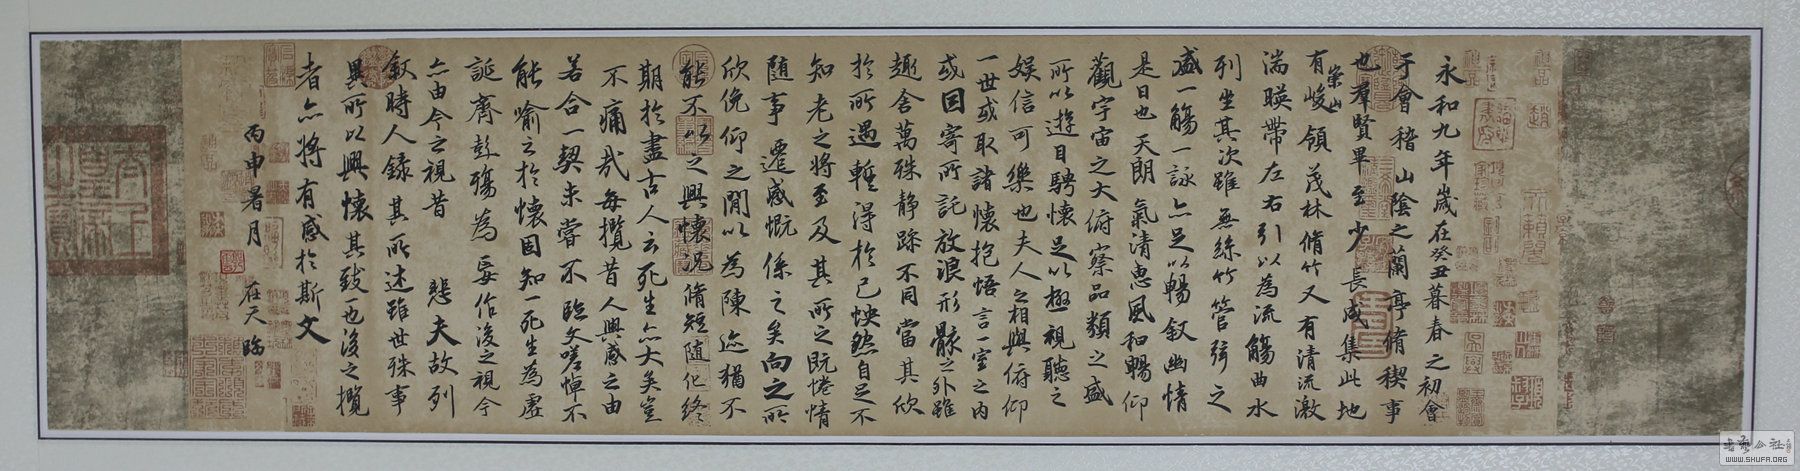 永和九年歲在癸丑暮春之初會
于會稽山陰之蘭亭脩稧事
也羣賢畢至少長咸集此地
有崇山峻領茂林脩竹又有清流激
湍暎帶左右引以為流觴曲水
列坐其次雖無絲竹管弦之
盛一觴一詠亦足以暢敘幽情
是日也天朗氣清惠風和暢仰
觀宇宙之大俯察品類之盛
所以遊目騁懷足以極視聽之
娛信可樂也夫人之相與俯仰
一世或取諸懷抱悟言一室之內
或因寄所託放浪形骸之外雖
趣舍萬殊靜躁不同當其欣
於所遇輕得於己怏然自足不
知老之將至及其所之既惓情
隨事遷感慨係之矣向之所
欣俛仰之閒以為陳迹猶不
能不以之興懷況脩短隨化終
期於盡古人云死生亦大矣豈
不痛哉每攬昔人興感之由
若合一契未嘗不臨文嗟悼不
能喻之於懷固知一死生為虛
誕齊彭殤為妄作後之視今
亦由今之視昔 悲夫故列
敘時人錄其所述雖世殊事
異所以興懷其致一也後之攬
者亦將有感於斯文
丙申暑月 在天臨
WWW.SHUFA.ORG